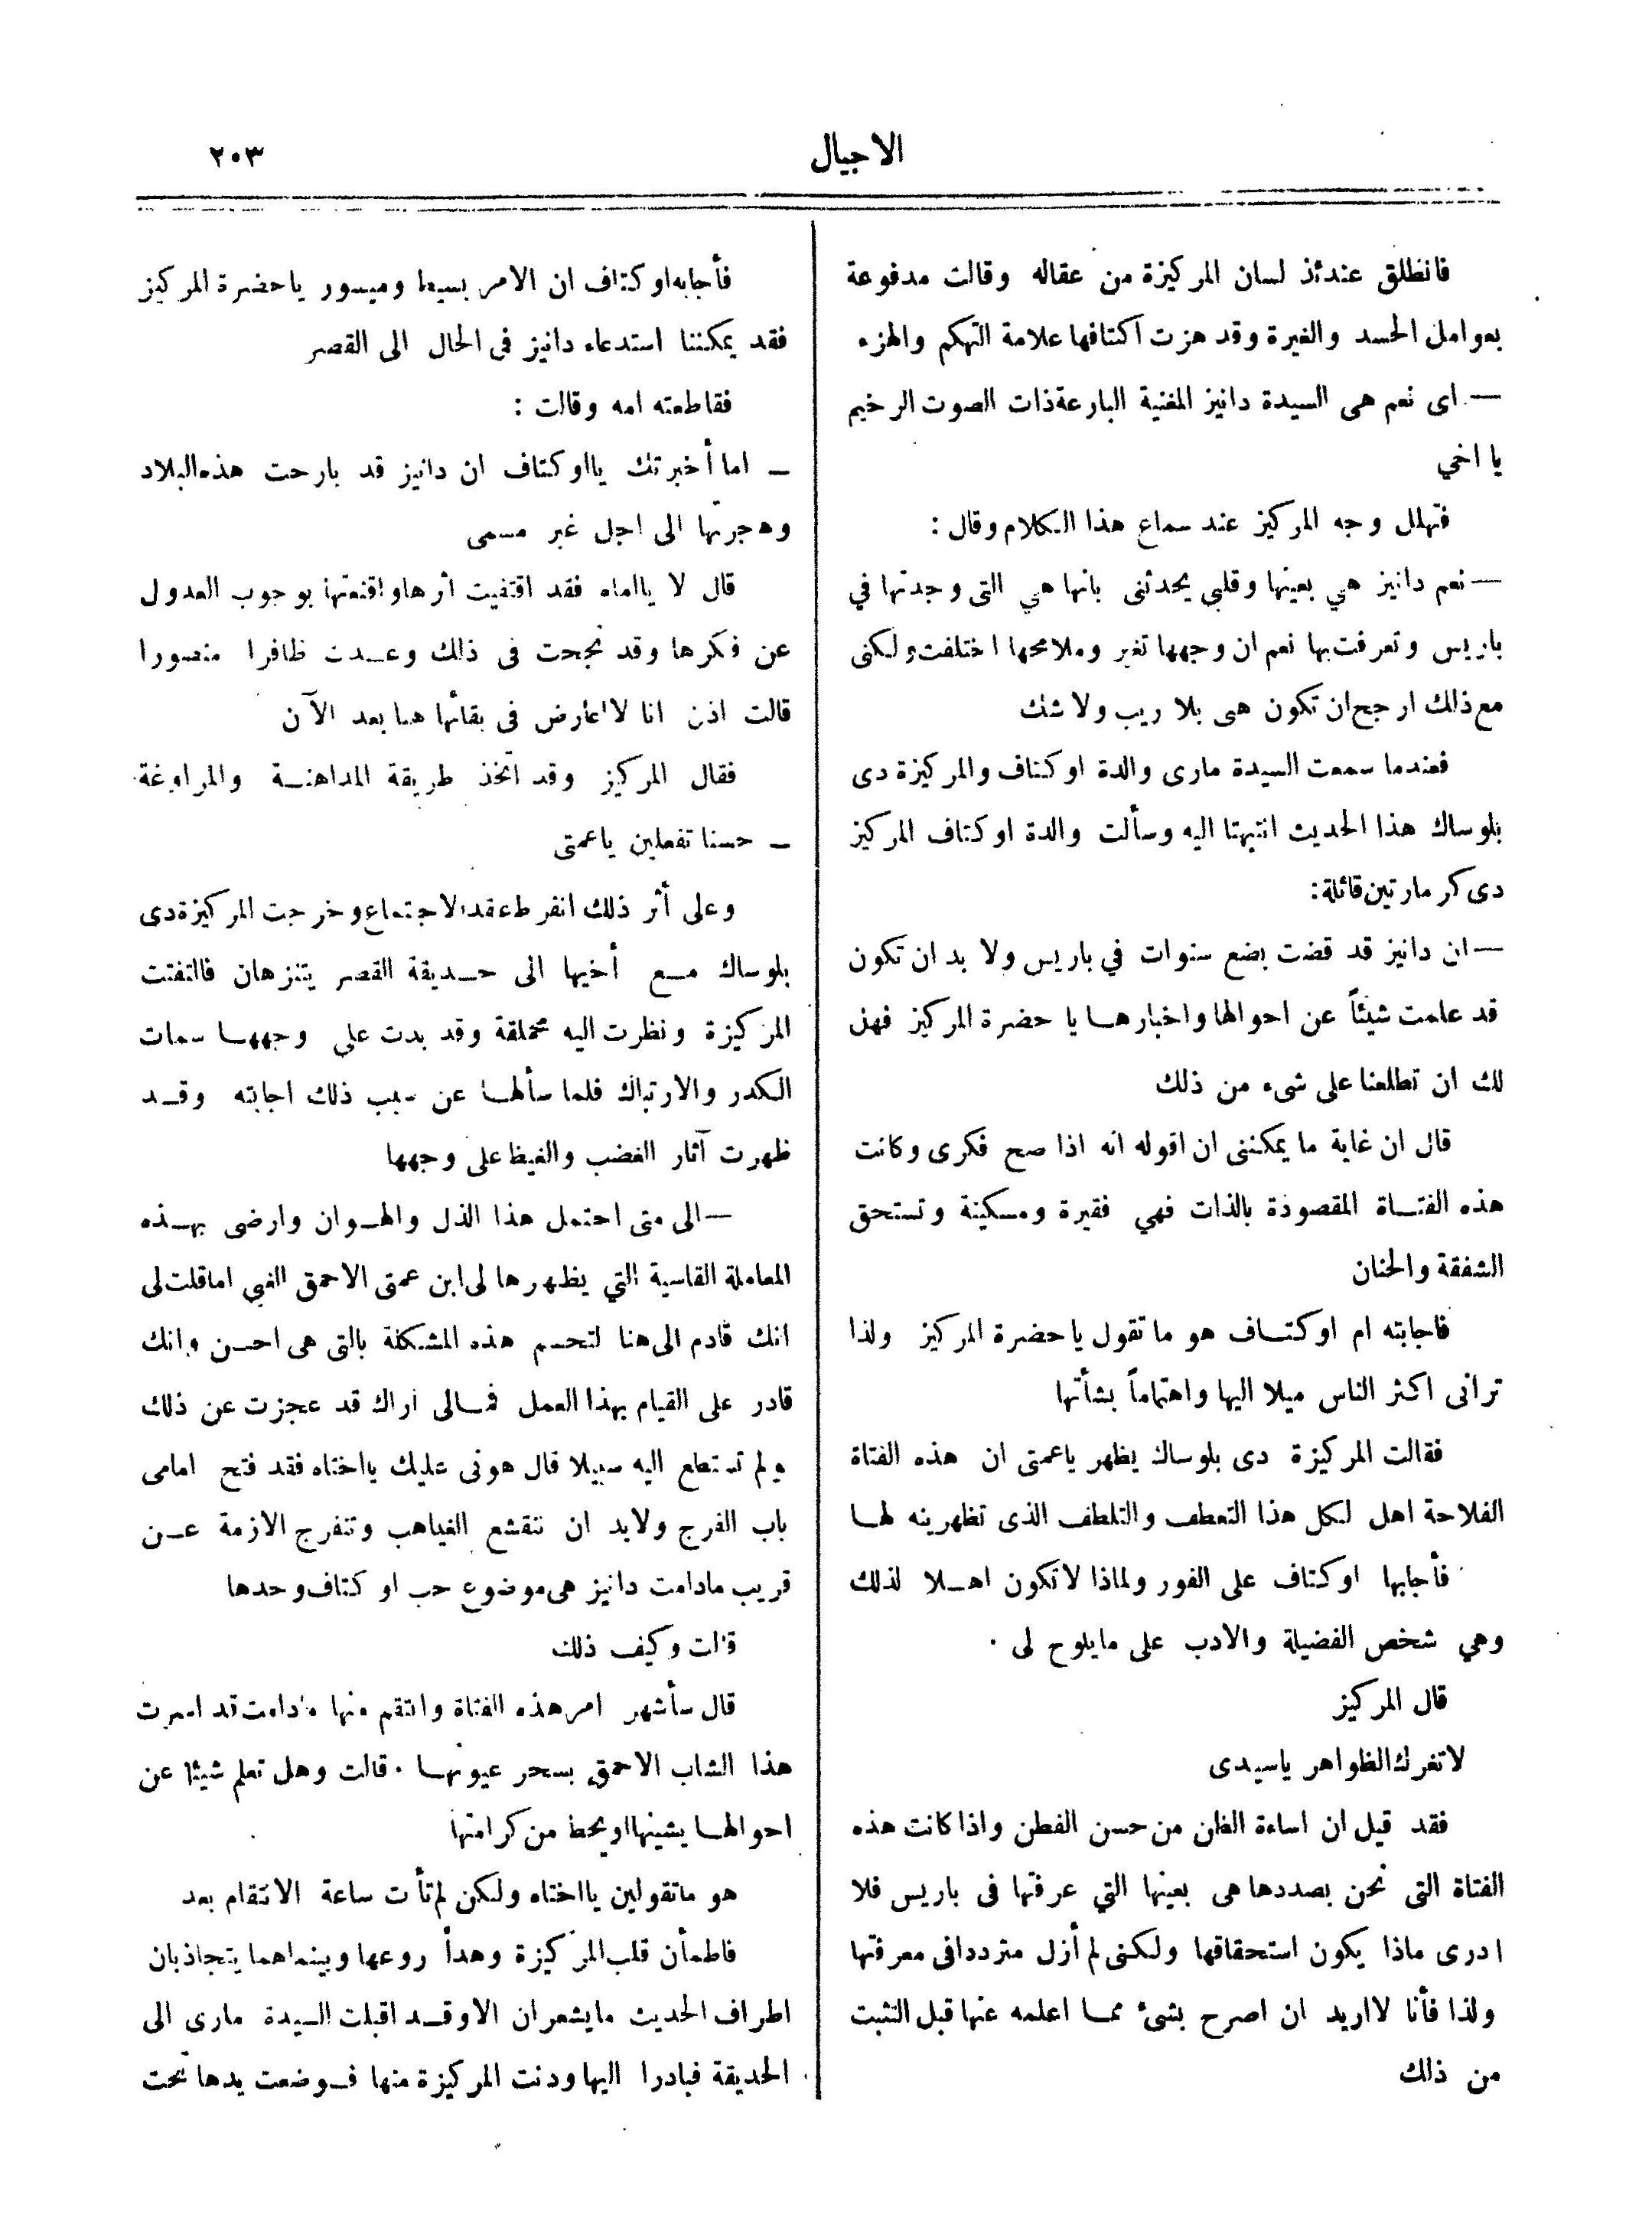 الاجيال
٢٠٣
فانطلق عندئذ لسان المركيزة من عقاله وقالت مدفوعة
بعوامل الحسد والغيرة وقد هزت اكتافها علامة التهكم والهزء
— اى نعم هى السيدة دانيز المغنية البارعة ذات الصوت الرخيم
يا اخي
فتهلل وجه المركيز عند سماع هذا الكلام وقال :
— نعم دانيز هي بعينها وقلبي يحدثنى بانها هي التى وجدتها في
باريس وتعرفت بها نعم ان وجهها تغير وملامحها اختلفت ولكنى
مع ذالك ارجح ان تكون هى بلا ريب ولا شك
فعندما سمعت السيدة مارى والدة اوكتاف والمركيزة دى
بلوساك هذا الحديث انتبهتا اليه وسألت والدة اوكتاف المركيز
دى كرمارتين قائلة :
— ان دانيز قد قضت بضع سنوات في باريس ولا بد ان تكون
قد علمت شيئاً عن احوالها واخبارها يا حضرة المركيز فهل
لك ان تطلعنا على شىء من ذلك
قال ان غاية ما يمكننى ان اقوله انه اذا صح فكرى وكانت
هذه الفتاة المقصودة بالذات فهي فقيرة ومسكينة وتستحق
الشفقة والحنان
فاجابته ام اوكتاف هو ما تقول يا حضرة المركيز ولذا
ترانى اكثر الناس ميلا اليها واهتماماً بشأنها
فقالت المركيزة دى بلوساك يظهر يا عمتى ان هذه الفتاة
الفلاحة اهل لكل هذا التعطف والتلطف الذى تظهرينه لها
فأجابها اوكتاف على الفور ولماذا لا تكون اهلا لذلك
وهي شخص الفضيلة والادب على ما يلوح لى .
قال المركيز
لا تغرك الظواهر يا سيدى
فقد قيل ان اساءة الظن من حسن الفطن واذا كانت هذه
الفتاة التى نحن بصددها هى بعينها التي عرفتها فى باريس فلا
ادرى ماذا يكون استحقاقها ولكنى لم أزل مترددا فى معرفتها
ولذا فأنا لا اريد ان اصرح بشئ مما اعلمه عنها قبل التثبت
من ذلك
فأجابه اوكتاف ان الامر بسيط وميسور يا حضرة المركيز
فقد يمكننا استدعاء دانيز فى الحال الى القصر
فقاطعته امه وقالت :
— اما أخبرتك يا اوكتاف ان دانيز قد بارحت هذه البلاد
وهجرتها الى اجل غير مسمى
قال لا يا اماه فقد اقتفيت اثرها واقنعتها بوجوب العدول
عن فكرها وقد نجحت فى ذلك وعدت ظافرا منصورا
قالت اذن انا لا اعارض فى بقائها هنا بعد الآن
فقال المركيز وقد اتخذ طريقة المداهنة والمراوغة
— حسنا تفعلين يا عمتى
وعلى أثر ذلك انفرط عقد الاجتماع وخرجت المركيزة دى
بلوساك مع أخيها الى حديقة القصر يتنزهان فالتفتت
المركيزة ونظرت اليه محملقة وقد بدت على وجهها سمات
الكدر والارتباك فلما سألها عن سبب ذلك اجابته وقد
ظهرت آثار الغضب والغيظ على وجهها
— الى متى احتمل هذا الذل والهوان وارضى بهذه
المعاملة القاسية التي يظهرها لى ابن عمتى الاحمق الغبي اما قلت لى
انك قادم الى هنا لتحسم هذه المشكلة بالتى هى احسن وانك
قادر على القيام بهذا العمل فمالى اراك قد عجزت عن ذلك
ولم تستطع اليه سبيلا قال هونى عليك يا اختاه فقد فتح امامى
باب الفرج ولابد ان تنقشع الغياهب وتنفرج الازمة عن
قريب مادامت دانيز هى موضوع حب اوكتاف وحدها
قالت وكيف ذلك
قال سأشهر امر هذه الفتاة وانتقم منها ما دامت قد اسرت
هذا الشاب الاحمق بسحر عيونها . قالت وهل تعلم شيئا عن
احوالها يشينها او يحط من كرامتها
هو ما تقولين يا اختاه ولكن لم تأت ساعة الانتقام بعد
فاطمأن قلب المركيزة وهدأ روعها وبينما هما يتجاذبان
اطراف الحديث ما يشعران الا وقد اقبلت السيدة مارى الى
الحديقة فبادرا اليها ودنت المركيزة منها فوضعت يدها تحت